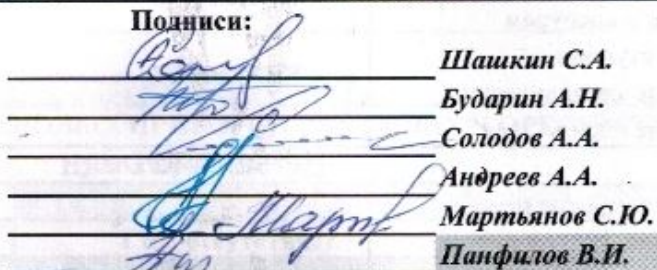 Подписи:
Шашкин С.А.
Бударин А.Н.
Солодов А.А.
Андреев А.А.
Мартьянов С.Ю.
Панфилов В.И.